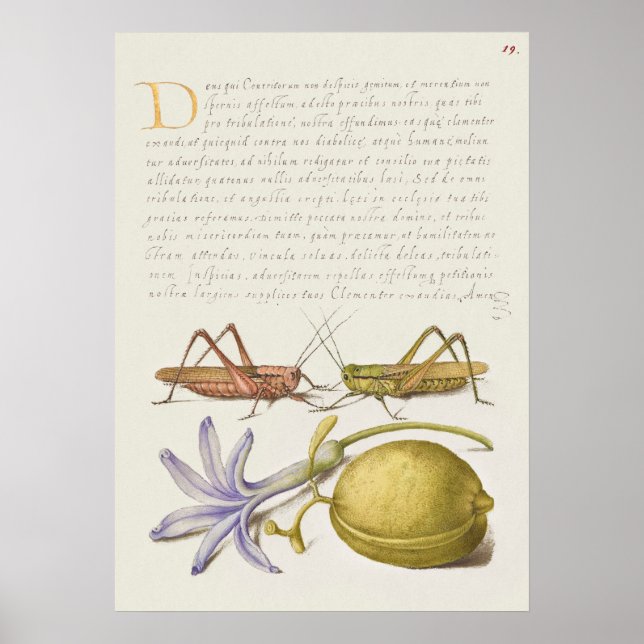 19.
Deus qui Contritorum non despicis gemitum, et merentium non
spernis affectum, adesto præcibus nostris, quas tibi
pro tribulatione, nostra effundimus: easque clementer
exaudi, ut quicquid contra nos diabolicę, atque humanę moliun
tur aduersitates, ad nihilum redigatur et consilio tuæ pietatis
allidatur, quatenus nullis aduersitatibus læsi, Sed de omni
tribulatione, et angustia erepti, lęti in ecclesia tua tibi
gratias referamus. Dimitte peccata nostra domine, et tribue
nobis misericordiam tuam, quàm præcamur, ut humilitatem no
stram attendas, vincula soluas, delicta deleas, tribulati-
onem Inspicias, aduersitatem repellas effectumq petitionis
nostræ largiens supplices tuos Clementer exaudias. Amen